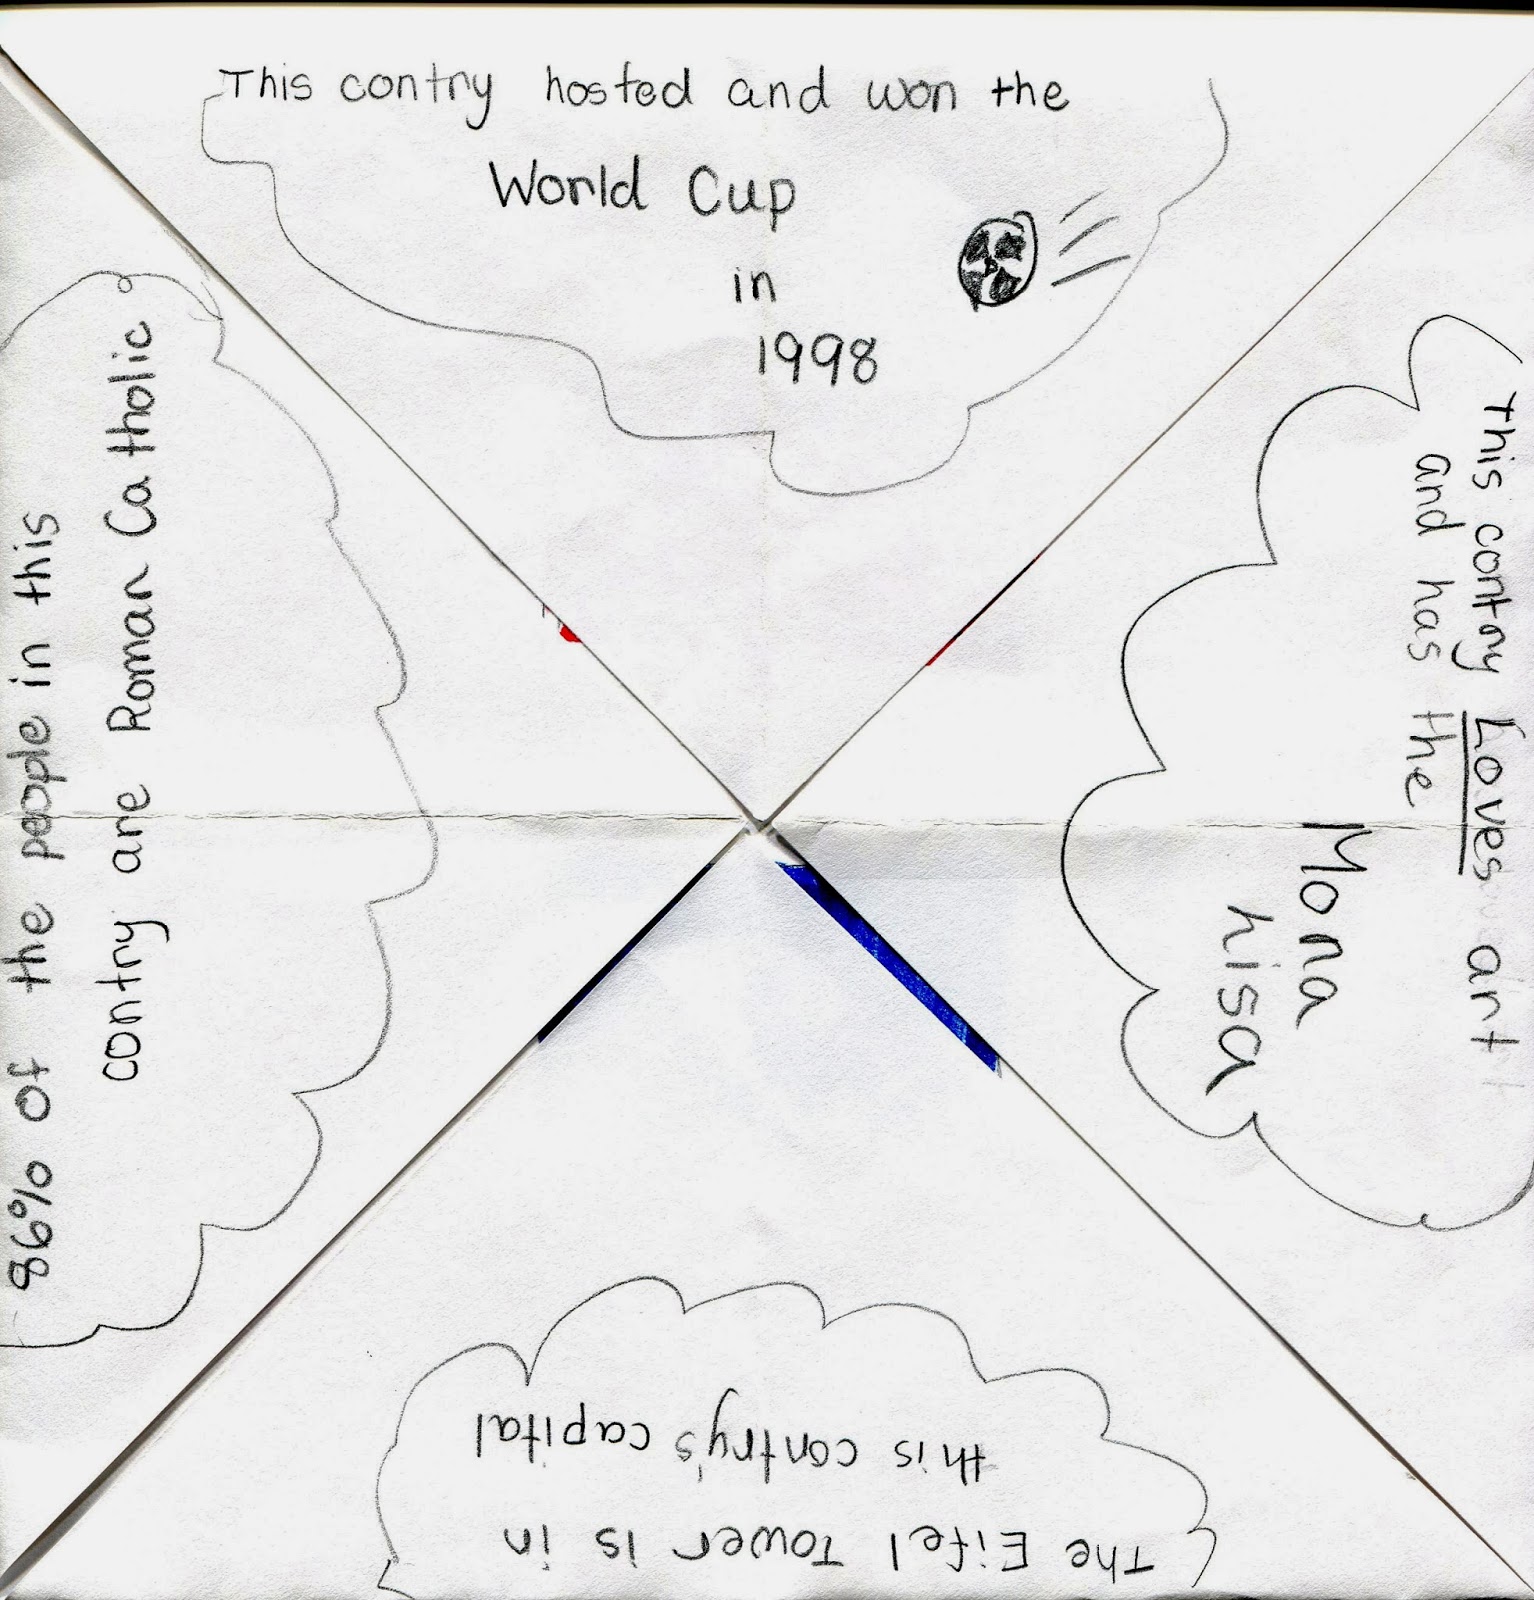 This contry hosted and won the
World Cup
in
1998
This contry Loves art
and has the
Mona
Lisa
The Eifel Tower is in
this contry's capital
86% of the people in this
contry are Roman Catholic